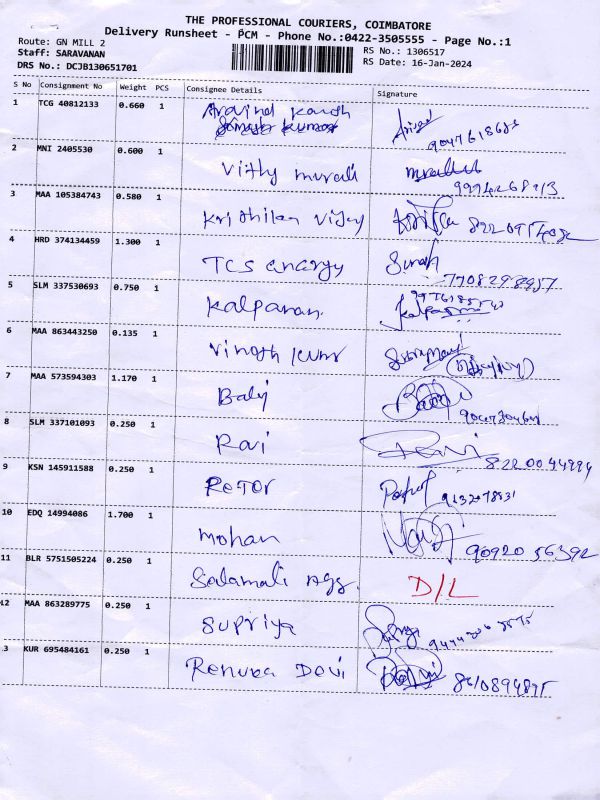 THE PROFESSIONAL COURIERS, COIMBATORE
Delivery Runsheet - PCM - Phone No.:0422-3505555 - Page No.:1
Route: GN MILL 2
Staff: SARAVANAN
DRS No.: DCJB130651701
RS No.: 1306517
RS Date: 16-Jan-2024
S No Consignment No Weight PCS Consignee Details Signature
1 TCG 40812133 0.660 1 Aravind
Kumar
2 MNI 2405530 0.600 1 Vithy murali
3 MAA 105384743 0.580 1 Krithilan Vijay
4 HRD 374134459 1.300 1 TCS energy
7708298957
5 SLM 337530693 0.750 1 Kalpanan.
6 MAA 863443250 0.135 1 Vinoth Kumr
7 MAA 573594303 1.170 1 Balaji
8 SLM 337101093 0.250 1 Ravi
9 KSN 145911588 0.250 1 Retor
10 EDQ 14994086 1.700 1 mohan
90920 56392
11 BLR 5751505224 0.250 1 Salamali Ags. D/L
12 MAA 863289775 0.250 1 Supriya
3 KUR 695484161 0.250 1 Renuka Devi